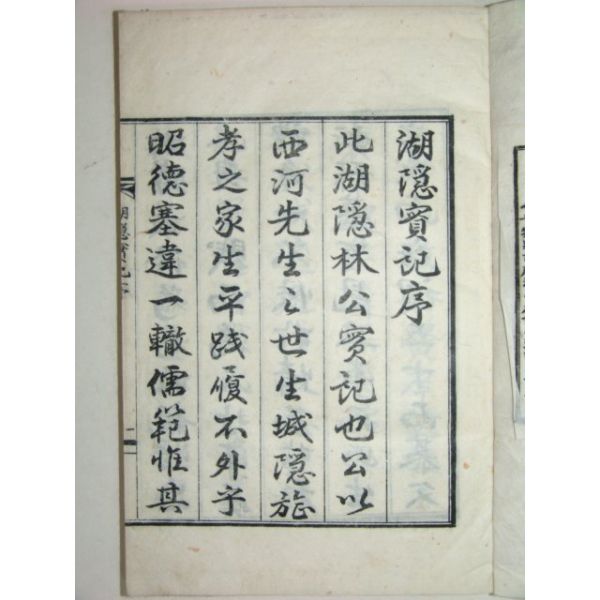 湖隱實記序
此湖隱林公實記也公以
西河先生之世生城隱旌
孝之家生平践履不外乎
昭德塞違一轍儒範惟其
湖隱實記序
一